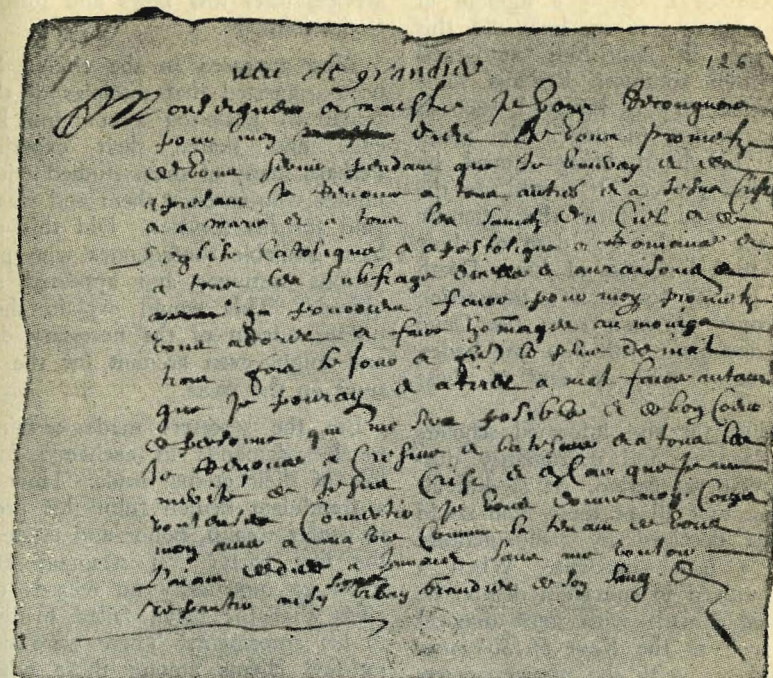 urb de grandier 126
Monseigneur et maistre Je vous Recongnois
pour mon dieu et Je vous promets
de vous servir pendant que Je vivray et des
apresant Je Renonce a tous autres et a Jesus Crist
et a marie et a tous les saincts du Ciel et a
l'eglise Catolique et apostolique et Romaine et
a tous les subfrage dicelle et auraisons
qui pouroient faire pour moy promets
vous adorer et faire hommages au moings
trois fois le jour et faire le plus de mal
que Je pouray et atirer a mal faire autant
de personne qui me sera posible et de bon Coeur
Je Renonce a Cresme et batesme et a tous les
merite de Jesus Crist et en Cas que Je me
voulusse Convertir Je vous donne mon Corps
mon ame et ma vie Comme la tenant de vous
L'aiant dediee a Jamais sans me vouloir
repantir ainsy signe urbain Grandier de son sang